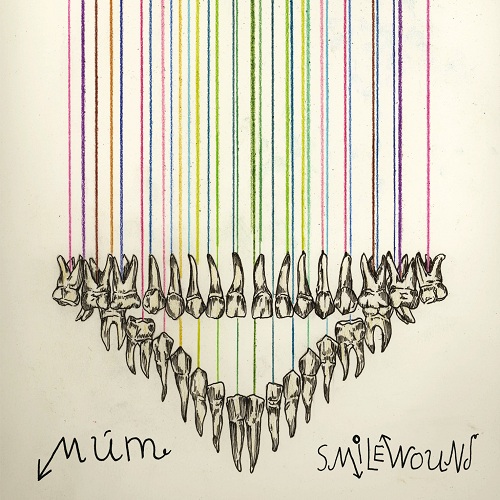 múm
SMILEWOUND